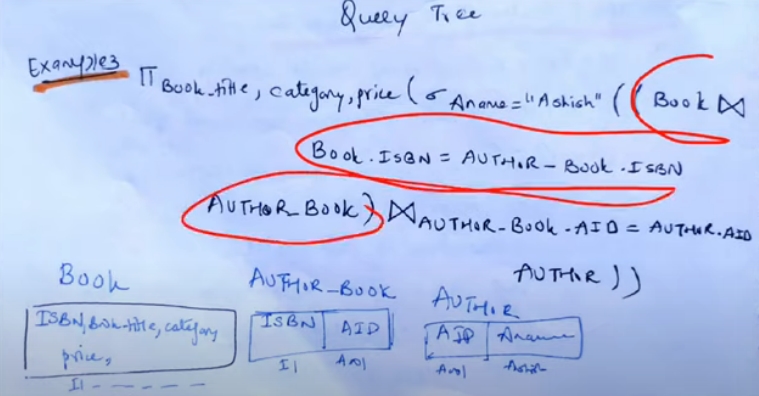 Query Tree
Example3
Π Book-title, category, price ( σ Aname="Ashish" ( ( Book ⋈
Book.ISBN = AUTHOR-Book.ISBN
AUTHOR_Book ) ⋈ AUTHOR-Book.AID = AUTHOR.AID
AUTHOR ) )
Book
ISBN, Book-title, category
price,
I1 - - - - - -
AUTHOR_BOOK
ISBN AID
I1 A001
AUTHOR
AID Aname
A001 Ashish